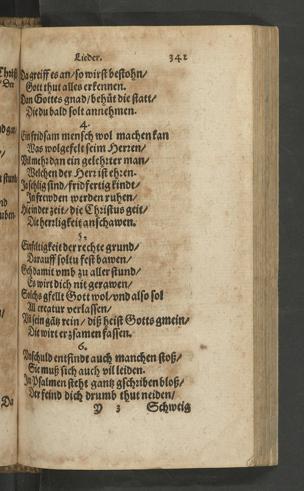 Lieder. 341
Da greiff es an/ so wirst bestohn/
Gott thut alles erkennen.
Den Gottes gnad/ behüt die statt/
Die du bald solt annehmen.
4.
Ein fridsam mensch wol machen kan
Was wolgefelt seim Herren/
Vil mehr dan ein gelehrter man/
Welchen der Herr ist ehren.
Ja selig sind/ fridfertig kindt/
In frewden werden ruhen/
Hie in der zeit/ die Christus geit/
Die herrligkeit anschawen.
5.
Einfeltigkeit der rechte grund/
Darauff soltu fest bawen/
Geh damit vmb zu aller stund/
Es wirt dich nit gerawen/
Solchs gfellt Gott wol/ vnd also sol
All creatur verlassen/
Wil sein gätz rein/ diß heist Gotts gmein/
Die wirt er zsamen fassen.
6.
Vnschuld entfindt auch manchen stoß/
Sie muß sich auch vil leiden.
In Psalmen steht gantz gschriben bloß/
Der feind dich drumb thut neiden/
Y 3 Schweig